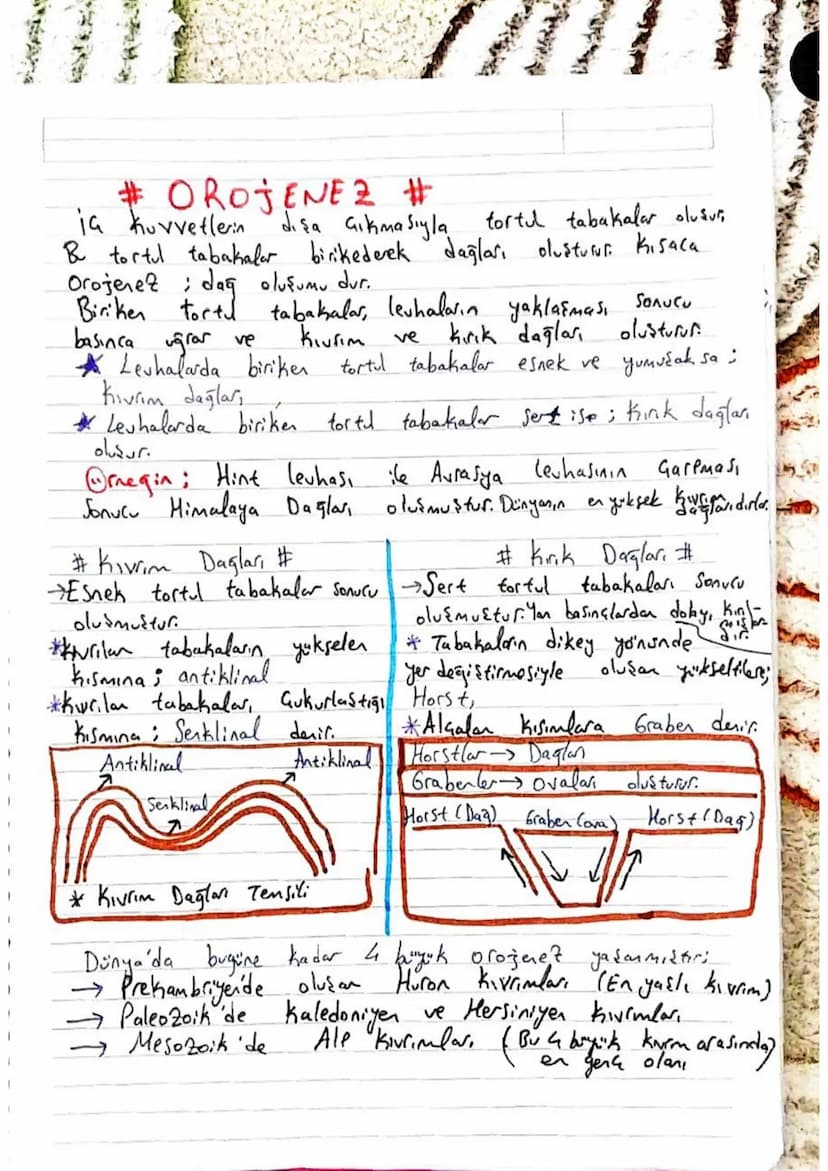 # OROJENEZ #
iç kuvvetlerin dışa çıkmasıyla tortul tabakalar oluşur,
& tortul tabakalar birikederek dağları oluşturur. Kısaca
Orojenez ; dağ oluşumu dur.
Biriken tortul tabakalar, levhaların yaklaşması sonucu
basınca uğrar ve kıvrım ve kırık dağları oluşturur.
★ Levhalarda biriken tortul tabakalar esnek ve yumuşak sa ;
kıvrım dağları,
★ Levhalarda biriken tortul tabakalar sert ise ; kırık dağları
oluşur.
Örneğin ; Hint levhası ile Avrasya levhasının çarpması
sonucu Himalaya Dağları oluşmuştur. Dünyanın en yüksek kıvrım
dağlarıdırlar.
# Kıvrım Dağları #
→Esnek tortul tabakalar sonucu
oluşmuştur.
*Kıvrılan tabakaların yükselen
kısmına ; antiklinal
*Kıvrılan tabakaları çukurlaştığı
kısmına ; Senklinal denir.
Antiklinal Antiklinal
Senklinal
* Kıvrım Dağları Temsili
# Kırık Dağları #
→Sert tortul tabakaları sonucu
oluşmuştur. Yan basınçlardan dolayı kırıl-
mışlar
dır.
* Tabakaların dikey yönünde
yer değiştirmesiyle oluşan yükseltilere;
Horst,
*Alçalan kısımlara Graben denir.
Horstlar → Dağları
Grabenler → Ovaları oluşturur.
Horst (Dağ) Graben (ova) Horst (Dağ)
Dünya'da bugüne kadar 4 büyük orojenez yaşanmıştır;
→ Prekambriyen'de oluşan Huron Kıvrımları (En yaşlı kıvrım)
→ Paleozoik'de Kaledoniyen ve Hersiniyen kıvrımları
→ Mesozoik'de Alp kıvrımları (Bu 4 büyük kıvrım arasında)
en genç olanı